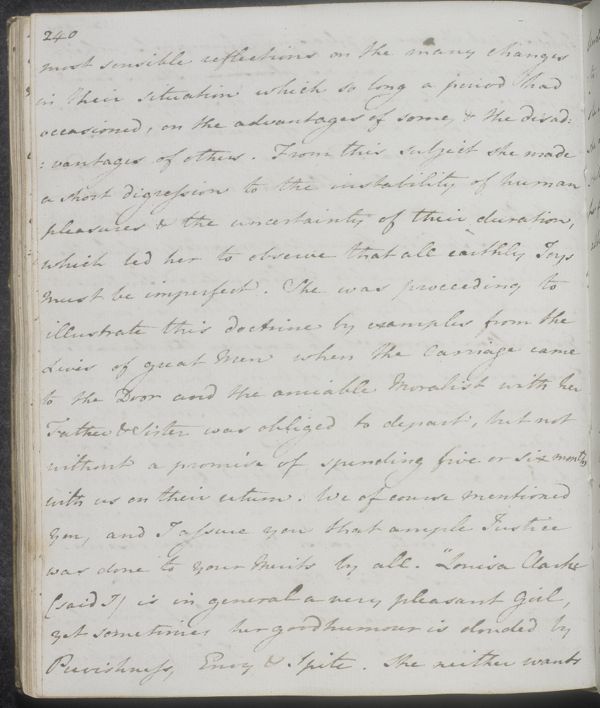 240
most sensible reflections on the many changes
in their situation which so long a period had
occasioned, on the advantages of some, & the disad:
:vantages of others. From this subject she made
a short digression to the instability of human
pleasures & the uncertainty of their duration,
which led her to observe that all earthly Joys
must be imperfect. She was proceeding to
illustrate this doctrine by examples from the
Lives of great Men when the Carriage came
to the Door and the amiable Moralist with her
Father & Sister was obliged to depart; but not
without a promise of spending five or six months
with us on their return. We of course mentioned
you, and I assure you that ample Justice
was done to your Merits by all. "Louisa Clarke
(said I) is in general a very pleasant Girl,
yet sometimes her good humour is clouded by
Peevishness, Envy & Spite. She neither wants